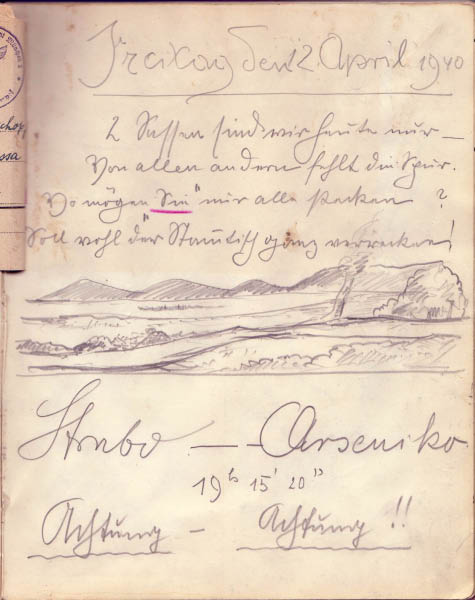 Freitag den 12 April 1940
2 Sassen sind wir heute nur —
Von allen andern fehlt die Spur.
Wo mögen "Sie" nur alle stecken ?
Soll wohl "der Stamtisch ganz verrecken!
Strabo — Arseniko.
19ʰ 15' 20"
Achtung – Achtung !!